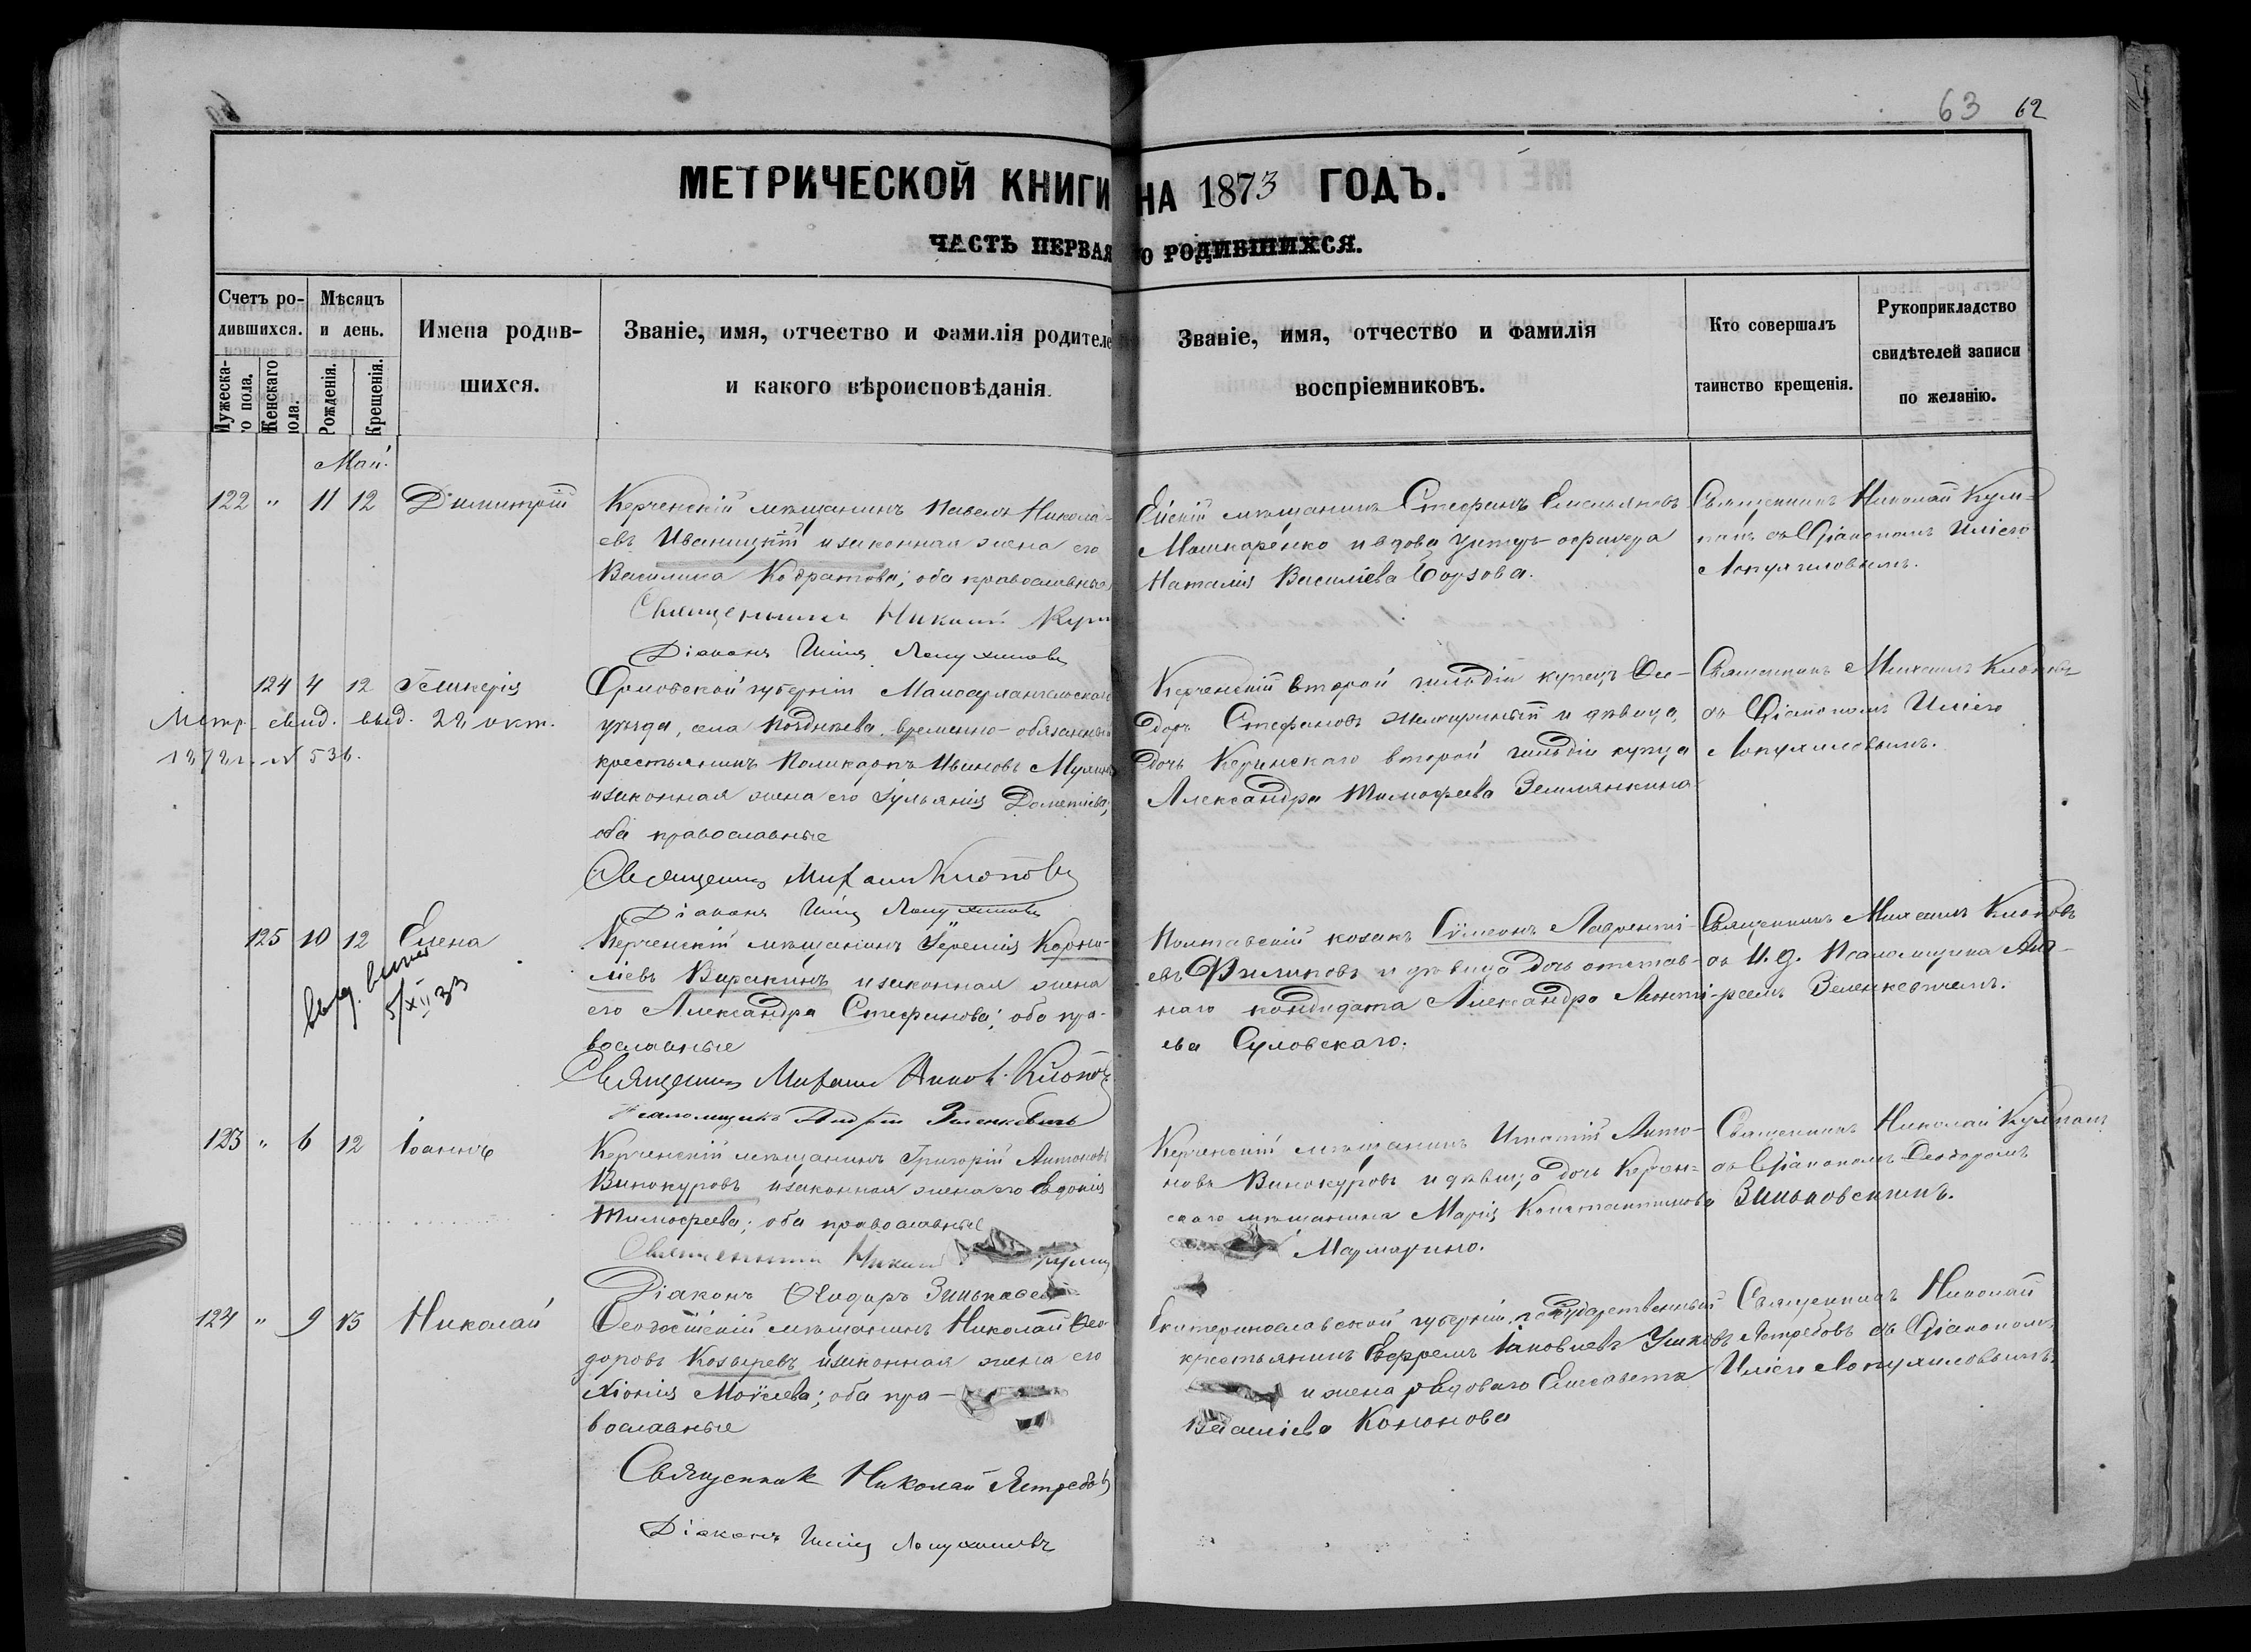 63 62
МЕТРИЧЕСКОЙ КНИГИ НА 1873 ГОДЪ.
ЧАСТЬ ПЕРВАЯ О РОДИВШИХСЯ.
Счетъ ро-
дившихся.
Мужеска-
го пола.
Женскаго
пола.
Мѣсяцъ
и день.
Рожденія.
Крещенія.
Имена родив-
шихся.
Званіе, имя, отчество и фамилія родителе
и какого вѣроисповѣданія.
Званіе, имя, отчество и фамилія
воспріемниковъ.
Кто совершалъ
таинство крещенія.
Рукоприкладство
свидѣтелей записи
по желанію.
Май.
122 " 11 12 Димитрій
Керченскій мѣщанинъ Павелъ Никола-
евъ Иваницкій и законная жена его
Василиса Кодратова; оба православные
Священникъ Николай
Діаконъ Илія Лопухиновъ
Ейскій мѣщанинъ Стефанъ Емельяновъ
Машкаренко и вдова унтеръ-офицера
Наталія Василіева
Священникъ Николай Кум-
панъ съ Діакономъ Иліею
Лопухиновымъ.
124 4 12 Гликерія
Метр. свид. выд. 22 окт.
№ 536.
Орловской губерніи Малоархангельскаго
уѣзда, села временно-обязанный
крестьянинъ Поликарпъ Ивановъ
и законная жена его Іульянія Дометіева;
оба православные
Священникъ Михаилъ Клоповъ
Діаконъ Илія Лопухиновъ
Керченскій второй гильдіи купецъ Ѳео-
доръ Стефановъ и дѣвица,
дочь Керченскаго второй гильдіи купца
Александра Тимофеева Землянкина
Священникъ Михаилъ Клоповъ
съ Діакономъ Иліею
Лопухиновымъ.
125 10 12 Елена
выд.
5/XII 33
Керченскій мѣщанинъ Іеремія Корни-
ліевъ Варакинъ и законная жена
его Александра Стефанова; оба пра-
вославные
Священникъ Михаилъ Клоповъ
Псаломщикъ Андрей Зеленкевичъ
Полтавскій козакъ Сѵмеонъ Лавренті-
евъ Филиповъ и дѣвица дочь отстав-
наго кондидата Александра Леонті-
ева Суловскаго.
Священникъ Михаилъ Клоповъ
съ И. д. Псаломщика Анд-
реемъ Зеленкевичемъ.
123 " 6 12 Іоаннъ
Керченскій мѣщанинъ Григорій Антоновъ
Винокуровъ и законная жена его Евдокія
Тимофеева; оба православные
Священникъ Николай
Діаконъ Ѳеодоръ
Керченскій мѣщанинъ Игнатій Анто-
новъ Винокуровъ и дѣвица дочь Керчен-
скаго мѣщанина Марія Константинова
Мармарино.
Священникъ Николай Кумпанъ
съ Діакономъ Ѳеодоромъ
Зиньковскимъ.
124 " 9 13 Николай
Ѳеодосійскій мѣщанинъ Николай Ѳео-
доровъ Козыревъ и законная жена его
Хіонія Моѵсеева; оба пра-
вославные
Священник Николай Ястребовъ
Діаконъ Илія Лопухиновъ
Екатеринославской губерніи государственный
крестьянинъ Ефремъ Іаковлевъ Ушковъ
и жена рядоваго Елисавета
Василіева Кононова
Священникъ Николай
Ястребовъ съ Діакономъ
Иліею Лопухиновымъ.